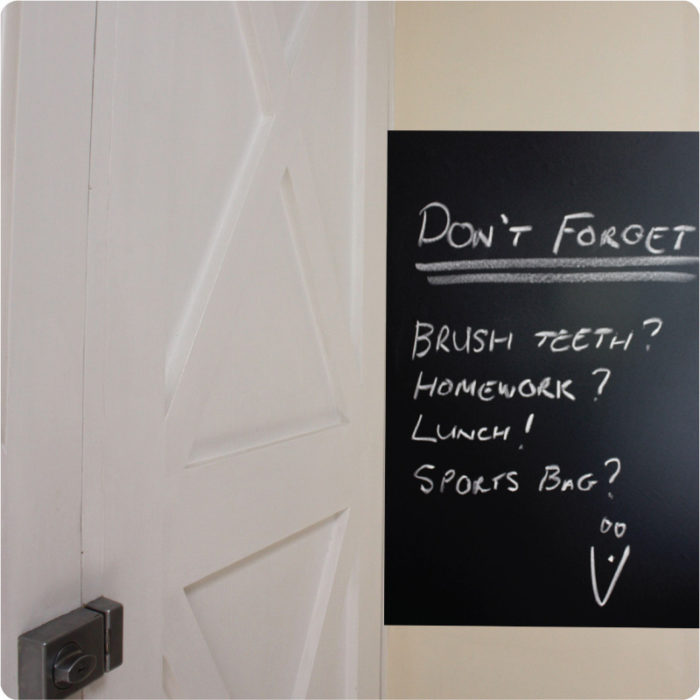 DON'T FORGET
BRUSH TEETH?
HOMEWORK?
LUNCH!
SPORTS BAG?